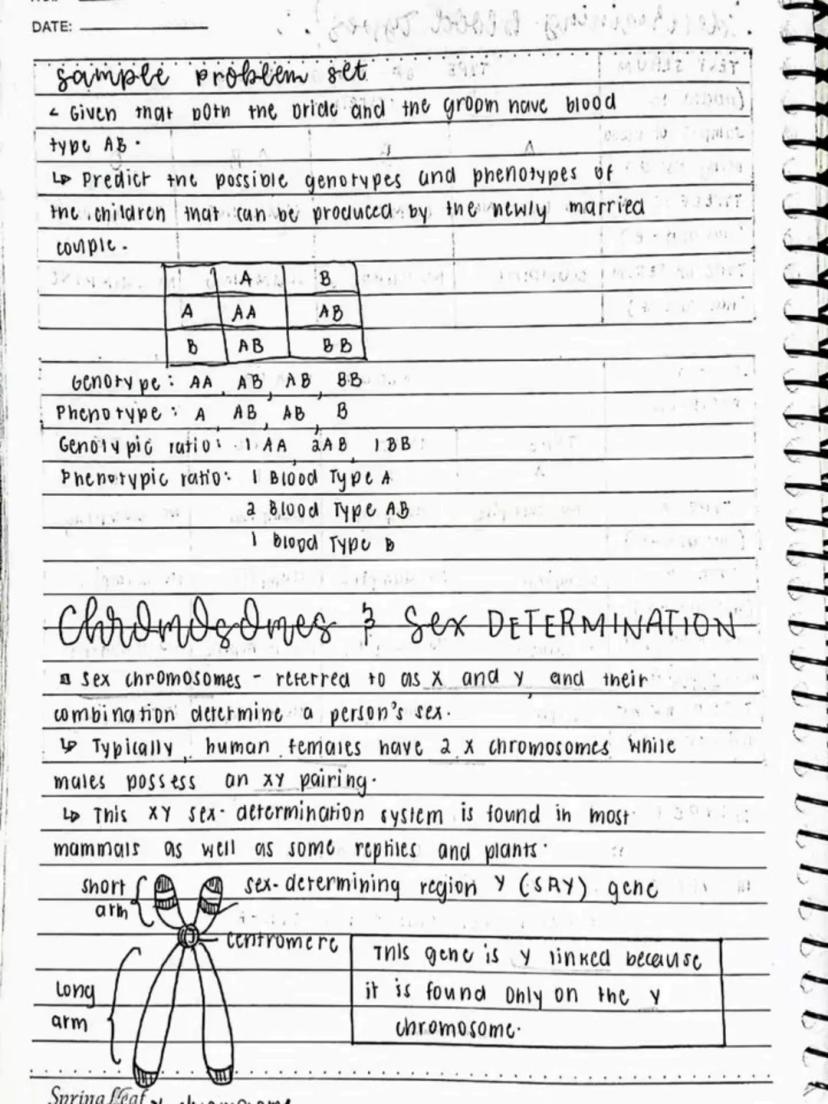 DATE:
Sample problem set
Given that both the bride and the groom have blood
type AB.
↳ Predict the possible genotypes and phenotypes of
the children that can be produced by the newly married
couple.
A B
A AA AB
B AB BB
Genotype: AA, AB, AB, BB
Phenotype: A, AB, AB, B
Genotypic ratio: 1 AA, 2AB, 1 BB
Phenotypic ratio: 1 Blood Type A
2 Blood Type AB
1 Blood Type B
Chromosomes & Sex DETERMINATION
sex chromosomes - referred to as X and Y, and their
combination determine a person's sex.
↳ Typically, human females have 2 X chromosomes while
males possess an XY pairing.
↳ This XY sex-determination system is found in most
mammals as well as some reptiles and plants.
short arm
sex-determining region Y (SRY) gene
centromere
This gene is Y linked because
it is found only on the Y
chromosome.
Long
arm
SpringLeaf